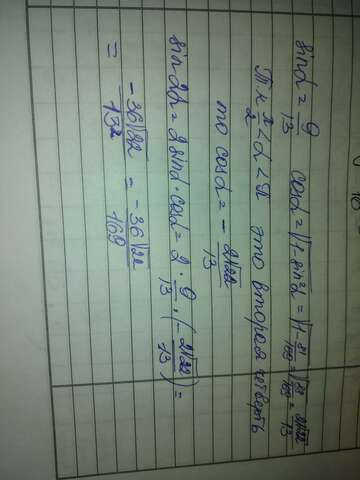 sinα = 9/13 cosα = √1-sin²α = √1-81/169 = √88/169 = 2√22/13
Т.к π/2 < α < π это вторая четверть
то cosα = - 2√22/13
sin2α = 2sinα·cosα = 2 · 9/13 · (-2√22/13) =
= -36√22/13² = -36√22/169